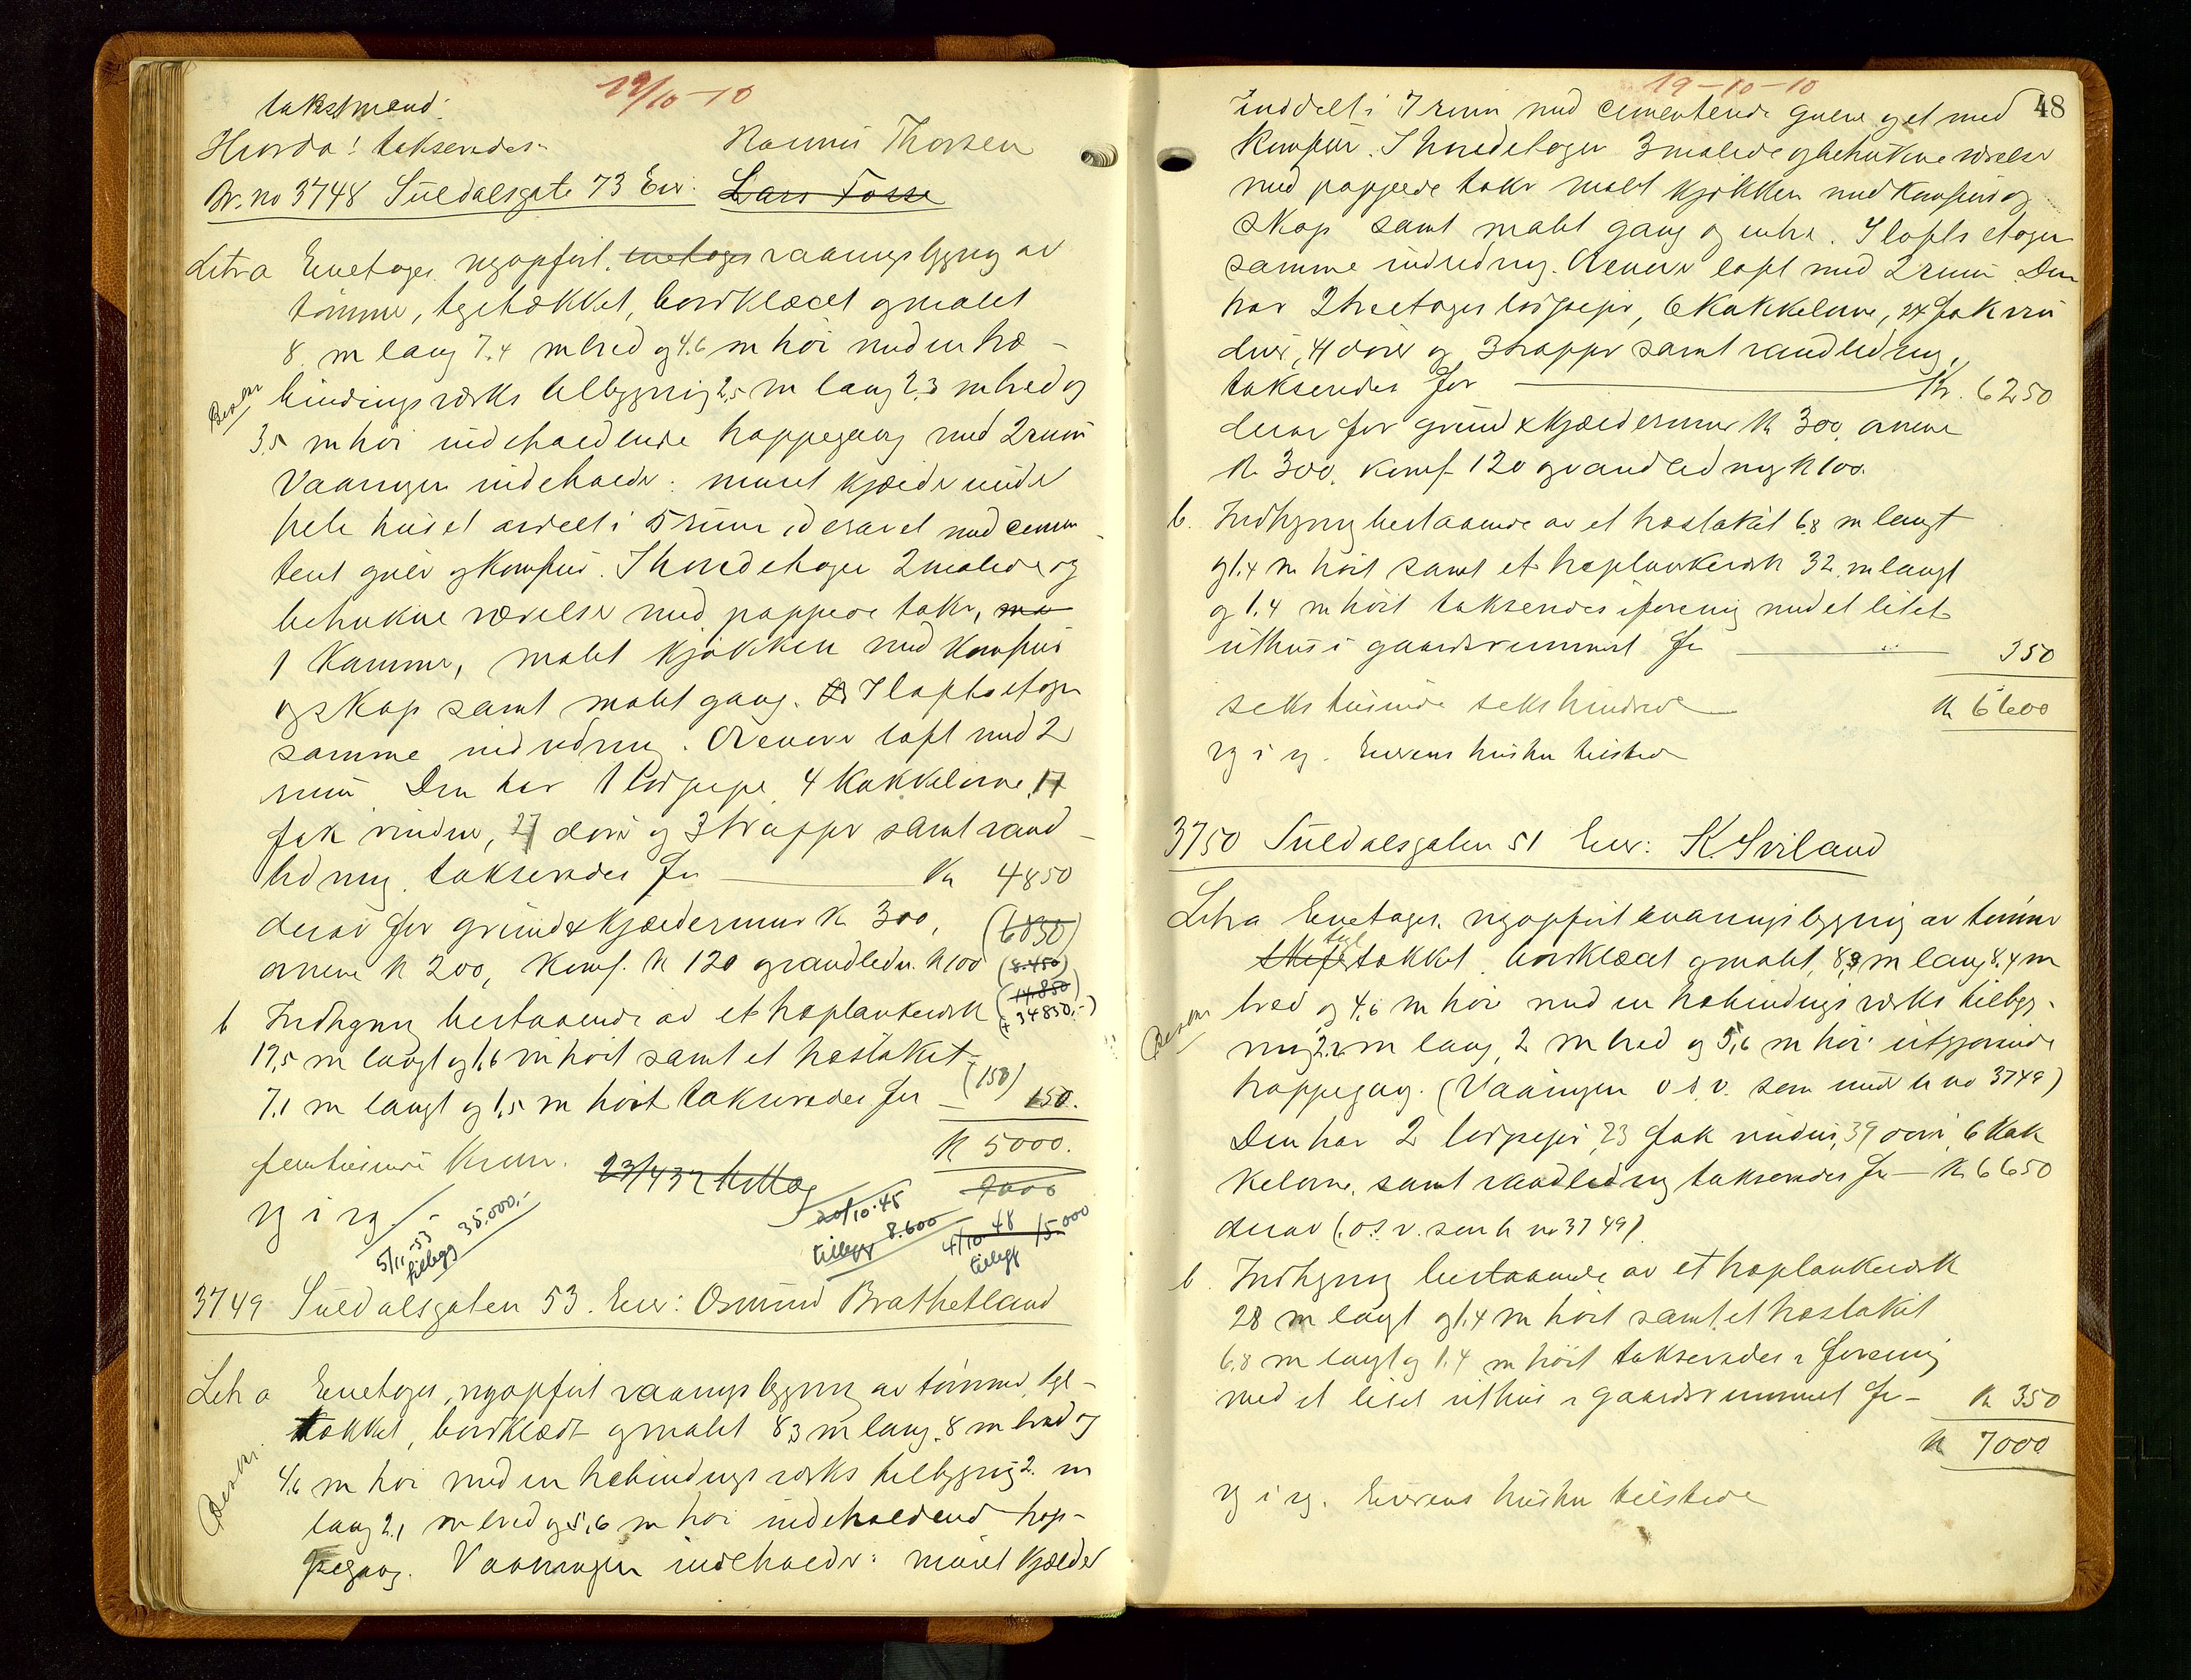 19/10-10
takstmænd:
Hvorda! takseredes
Rasmus Thorsen
Br. no 3748 Suldalsgate 73 Eier: Lars Fosse
Litra Enetages nyopført, enetages vaaningsbygning av
tømmer, tegltækket, bordklædt og malet
8 m lang 7.4 m bred og 4.6 m høi med en træ-
bindingsverks tilbygning 2,5 m lang 2,3 m bred og
3,5 m høi indeholdende trappegang med 2 rum
Vaaningen indeholder: muret kjælder under
hele huset avdelt i 5 rum, derav et med cemen-
tert gulv og komfur. I hovedetagen 2 malede og
betrukne værelser med pappede take, ma
1 kammer, malet kjøkken med komfur
og skap samt malet gang. I loftsetagen
samme indredning. Øvenover loft med 2
rum Den har 1 luftpipe 4 kakkelovne, 17
fak vinduer, 27 døre og 3 trapper samt vand-
ledning, takseredes for Kr 4850
derav for grund & kjældermur Kr 300, (6850)
ovnene Kr 200, Komf. Kr 120 og vandledn. Kr 100 (8.450)
(14.850)
(+ 34850,-)
b Indhegning bestaaende av et træplankeverk
19,5 m langt og 1,6 m høit samt et træstaket
7,1 m langt og 1,5 m høit takseredes for (150) 150.
Kr 5000.
femtusinde Kroner. 23/4 32
9000
20/10-45
tillegg 8.600
4/10 48 15000
tillegg
5/11-53
tillegg 35.000,-
3749 Suldalsgaten 53. Eier: Osmund Brathetland
Litra Enetages, nyopført vaaningsbygning av tømmer, tegl-
tækket, bordklædt og malet 8,3 m lang, 8 m bred og
4,6 m høi med en træbindingsverks tilbygning 2. m
lang 2,1 m bred og 5,6 m høi indeholdend trap-
pegang. Vaaningen indeholder: muret kjælder
19-10-10
48
inddelt i 7 rum med cementerede gulve og et med
Komfur. I hovedetagen 3 malede og betrukne værelser
med pappede take malet kjøkken med komfur og
skap samt malet gang og entre. I lofts etagen
samme indredning. Øvenover loft med 2 rum Den
har 2 treetages luftpiper, 6 kakkelovne, 24 fak vin
duer, 41 dører og 3 trapper samt vandledning,
takseredes for Kr. 6250
derav for grund & kjældermur Kr 300, ovnene
Kr 300, Komf. 120 og vandledning Kr 100.
b. Indhegning bestaaende av et træstaket 6,8 m langt
og 1,4 m høit samt et træplankeverk 32 m langt
og 1,4 m høit takseredes i forening med et litet
uthus i gaardsrummet for 350
Kr 6600
seks tusinde seks hundrede
Eierens hustru tilstede
3750 Suldalsgaten 51 Eier: K. Sviland
Litra Enetages, nyopført vaaningsbygning av tømmer
skifer tegl tækket, bordklædt og malet, 8,3 m lang 8,4 m
bred og 4,6 m høi med en træbindings verks tilbyg-
ning 2,2 m lang, 2 m bred og 5,6 m høi utgjørende
trappegang. (Vaaningen o.s.v. som under br no 3749)
Den har 2 luftpiper, 23 fak vinduer, 39 dører, 6 kak
kelovne, samt vandledning takseredes for Kr 6650
derav (o.s.v. som br no 3749)
b. Indhegning bestaaende av et træplankeverk
28 m langt og 1,4 m høit samt et træstaket
6,8 m langt og 1,4 m høit takseredes i forening
med et litet uthus i gaardsrummet for Kr 350
Kr 7000
Eierens hustru tilstede